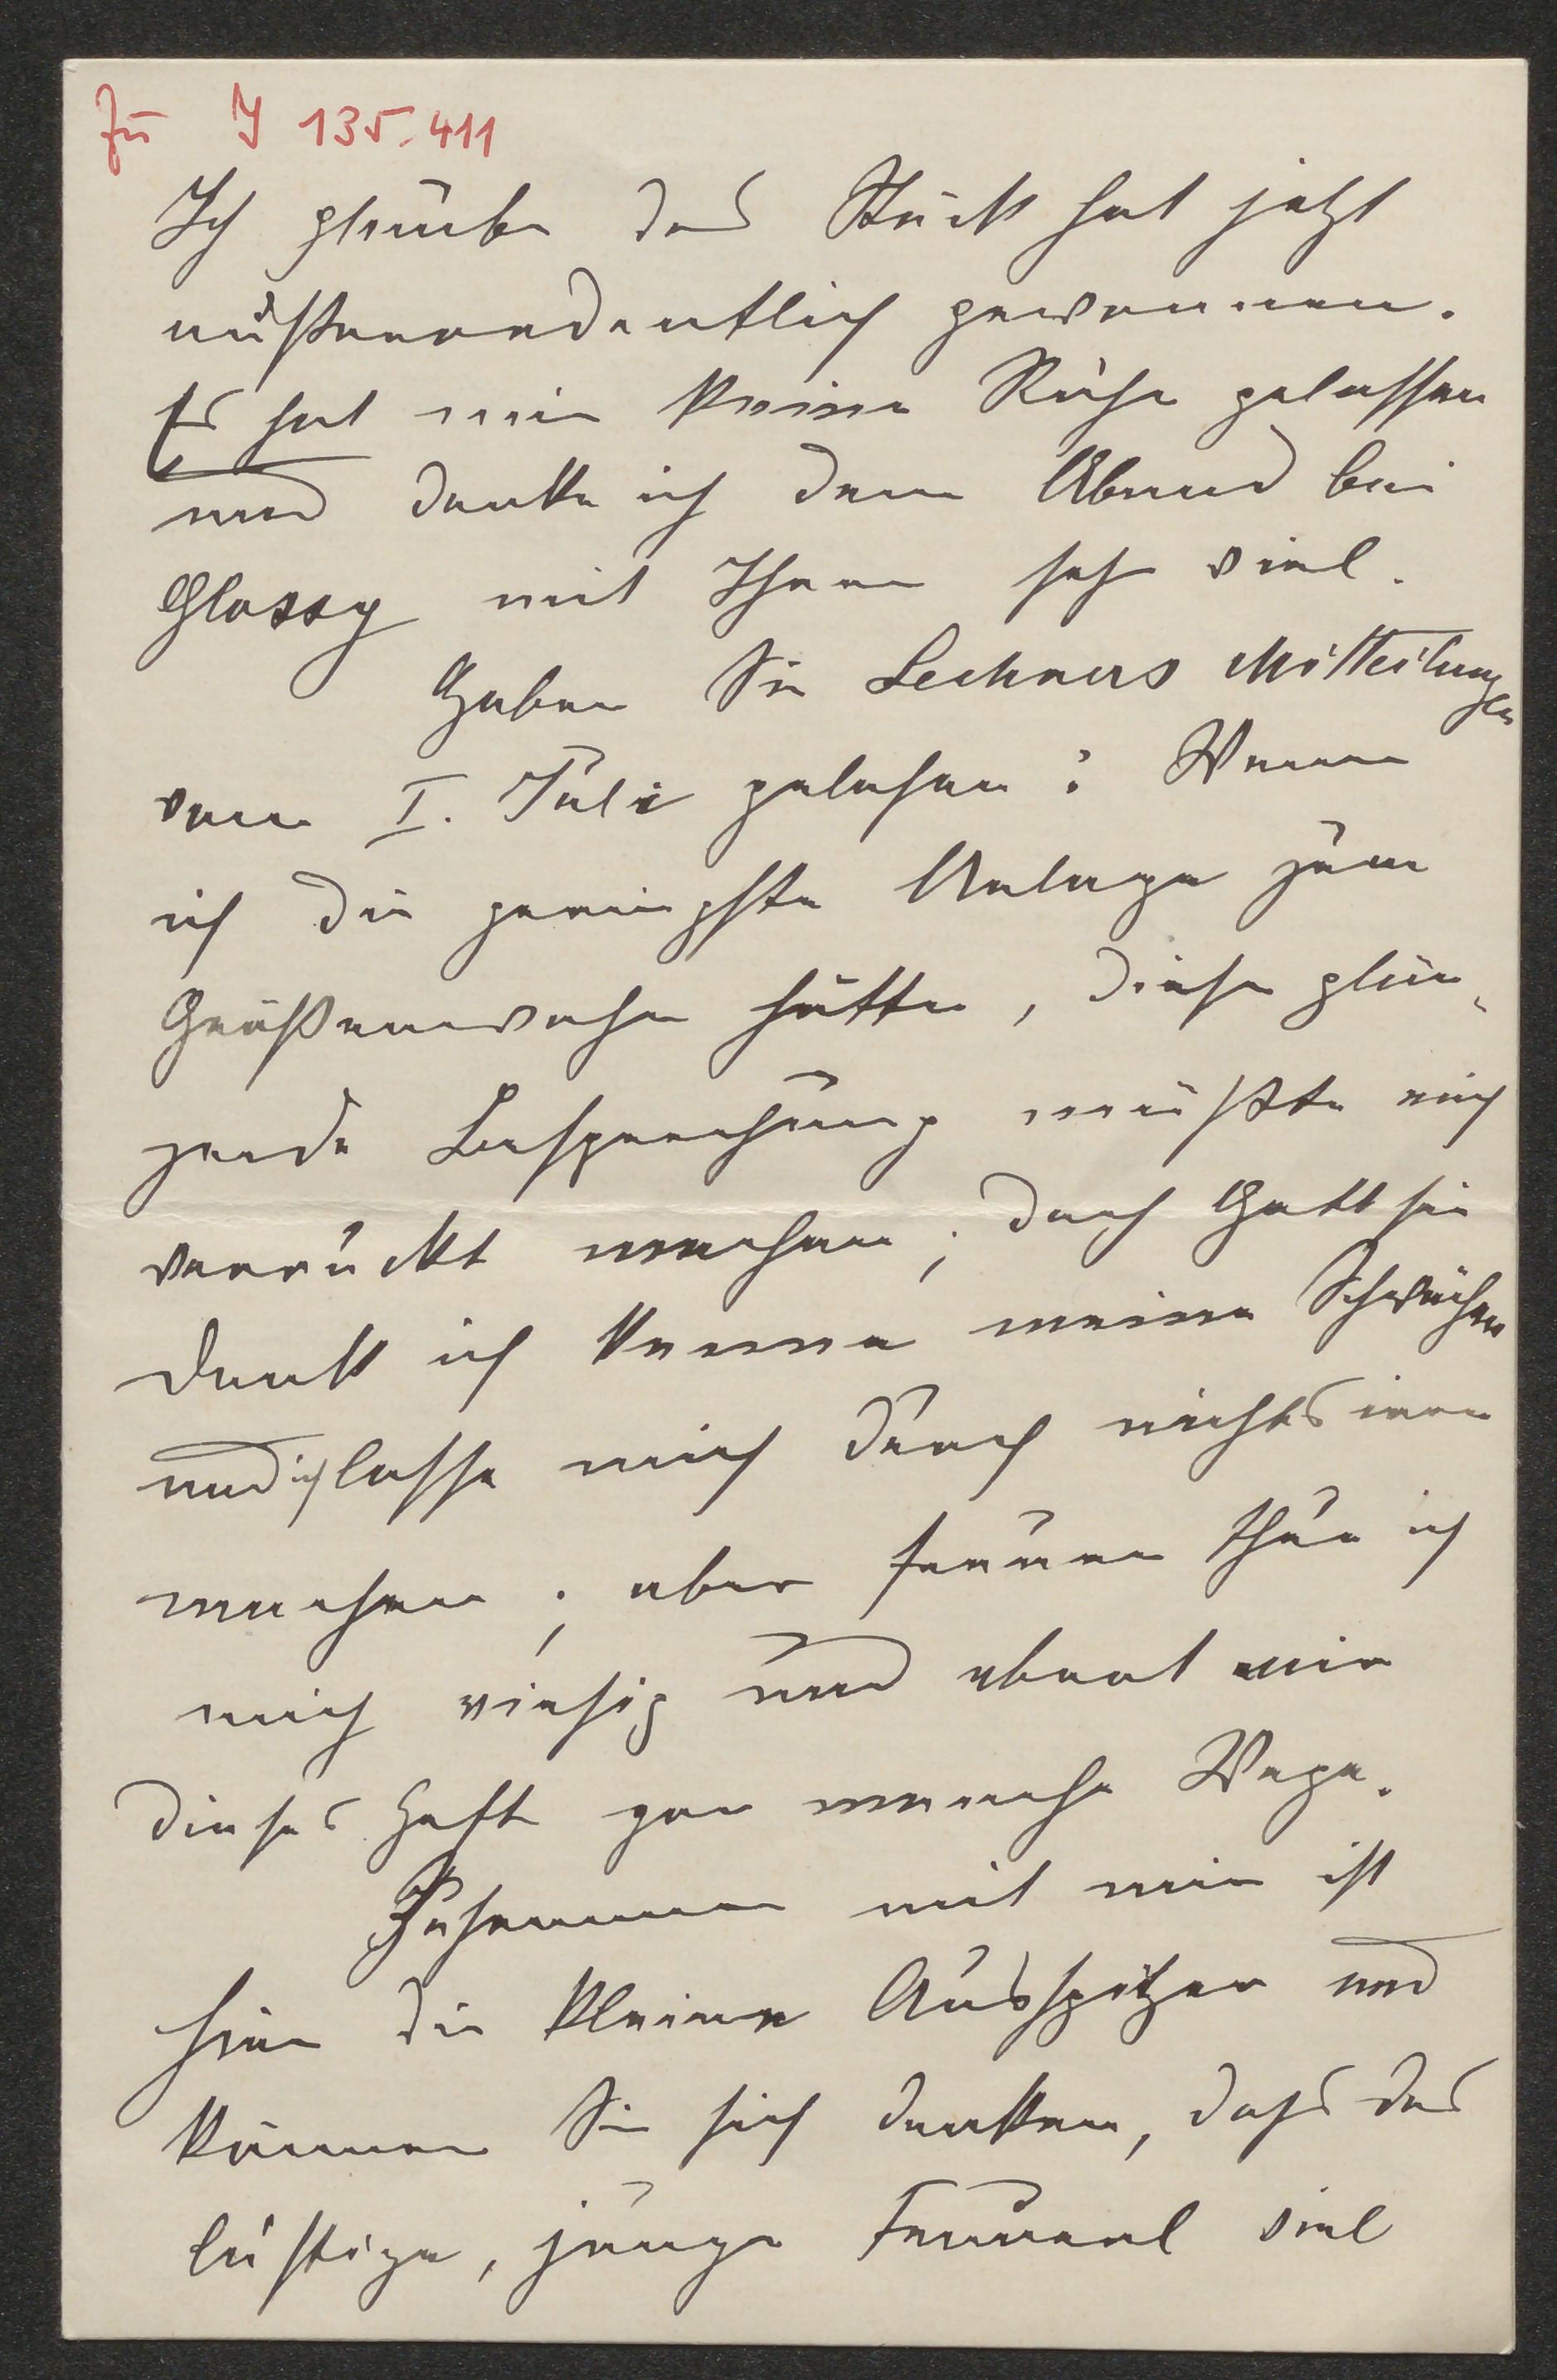 Zu I 135.411
Ich glaube das Stück hat jetzt
außerordentlich gewonnen.
Es hat mir keine Ruhe gelassen
und danke ich dem Abend bei
Glossy mit Ihnen sehr viel.
Haben Sie Lechners Mitteilungen
vom I. Juli gelesen? Wenn
ich die geringste Anlage zum
Größenwahn hätte, diese glän-
zende Besprechung müßte mich
verrückt machen; doch Gott sei
Dank ich kenne meine Schwächen
und ich lasse mich durch nichts irre
machen; aber freuen thue ich
mich riesig und ebnet mir
dieses Heft gar manche Wege.
Zusammen mit mir ist
hier die kleine Ausspitzer und
können Sie sich denken, dass das
lustige, junge Frauerl viel